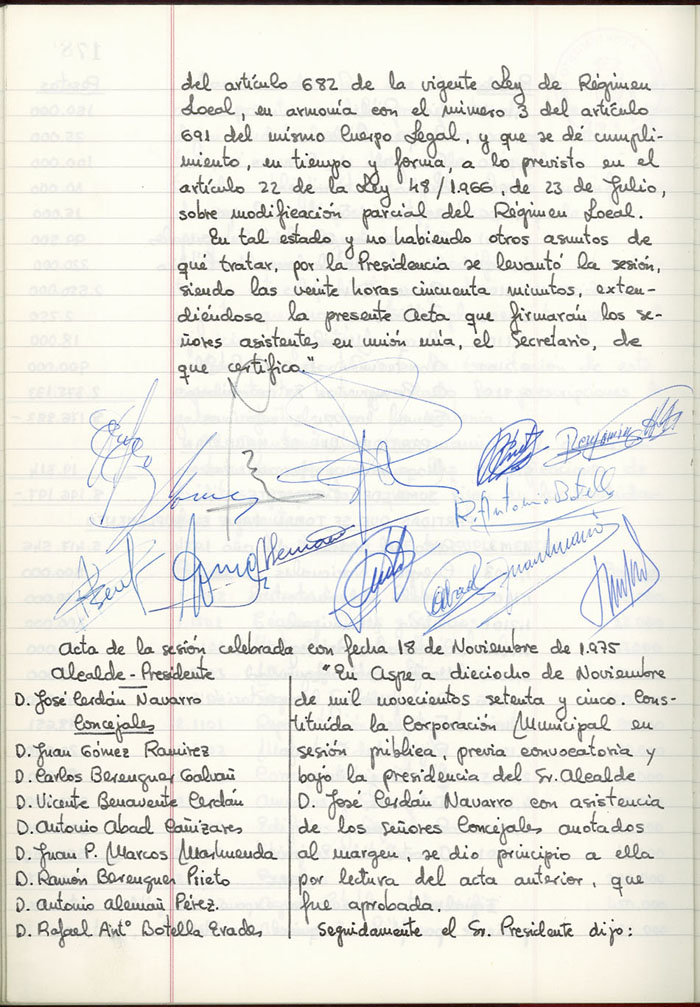 del artículo 682 de la vigente Ley de Régimen
Local, en armonía con el número 3 del artículo
691 del mismo Cuerpo Legal, y que se dé cumpli-
miento, en tiempo y forma, a lo previsto en el
artículo 22 de la Ley 48/1.966, de 23 de Julio,
sobre modificación parcial del Régimen Local.
En tal estado y no habiendo otros asuntos de
qué tratar, por la Presidencia se levantó la sesión,
siendo las veinte horas cincuenta minutos, exten-
diéndose la presente Acta que firmarán los se-
ñores asistentes en unión mía, el Secretario, de
que certifico."
Benjamín
R. Antonio Botella
Alemañ
Abad
Acta de la sesión celebrada con fecha 18 de Noviembre de 1.975
Alcalde-Presidente
D. José Cerdán Navarro
Concejales
D. Juan Gómez Ramirez
D. Carlos Berenguer Galvañ
D. Vicente Benavente Cerdán
D. Antonio Abad Cañizares
D. Juan P. Marcos Mashuenda
D. Ramón Berenguer Prieto
D. Antonio Alemañ Pérez.
D. Rafael Antº Botella Erades
"En Aspe a dieciocho de Noviembre
de mil novecientos setenta y cinco. Cons-
tituída la Corporación Municipal en
sesión pública, previa convocatoria y
bajo la presidencia del Sr. Alcalde
D. José Cerdán Navarro con asistencia
de los señores Concejales anotados
al margen, se dio principio a ella
por lectura del acta anterior, que
fue aprobada.
Seguidamente el Sr. Presidente dijo: